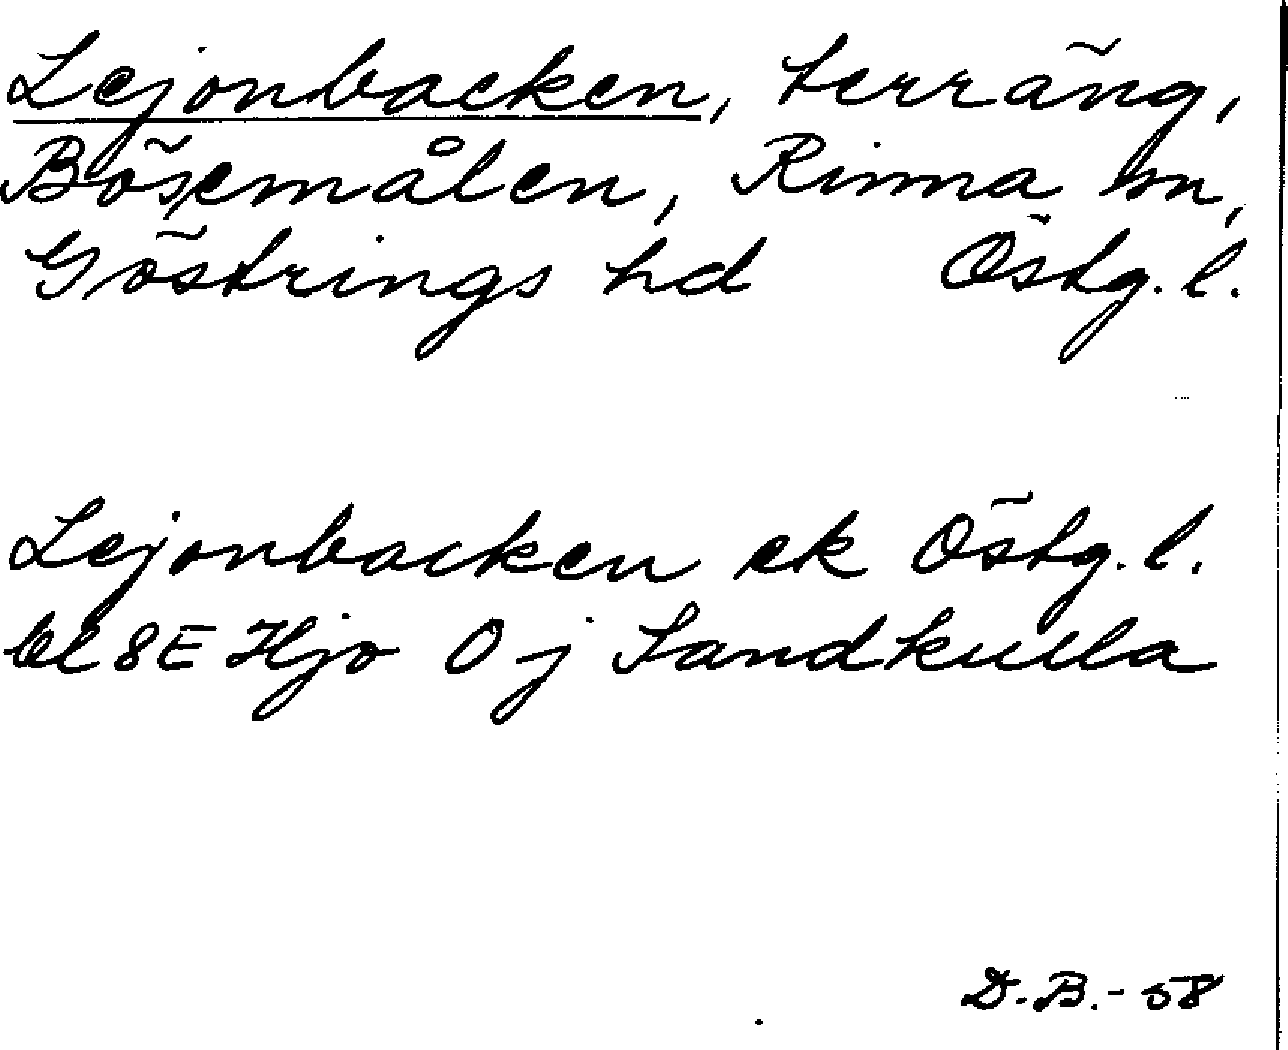 Lejonbacken, terräng,
Bösemålen, Rinna sn,
Göstrings hd Östg. l.
Lejonbacken ek Östg. l.
bl 8E Hjo 0j Sandkulla
D.B.-58